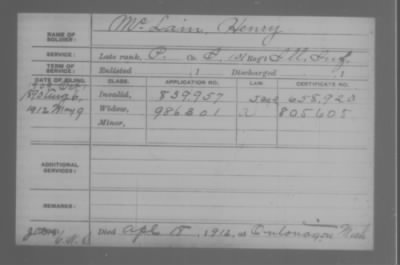 NAME OF SOLDIER: McLain, Henry
SERVICE: Late rank, P. Co. Reg't Ill. Inf.
TERM OF SERVICE: Enlisted , 1 Discharged , 1
DATE OF FILING. CLASS. APPLICATION NO. LAW. CERTIFICATE NO.
Invalid, 839.957 658.923
1912 May 9 Widow, 986301 805605
Minor,
ADDITIONAL SERVICES:
REMARKS:
Died Apl 18, 1912, at Ontonagon Mich